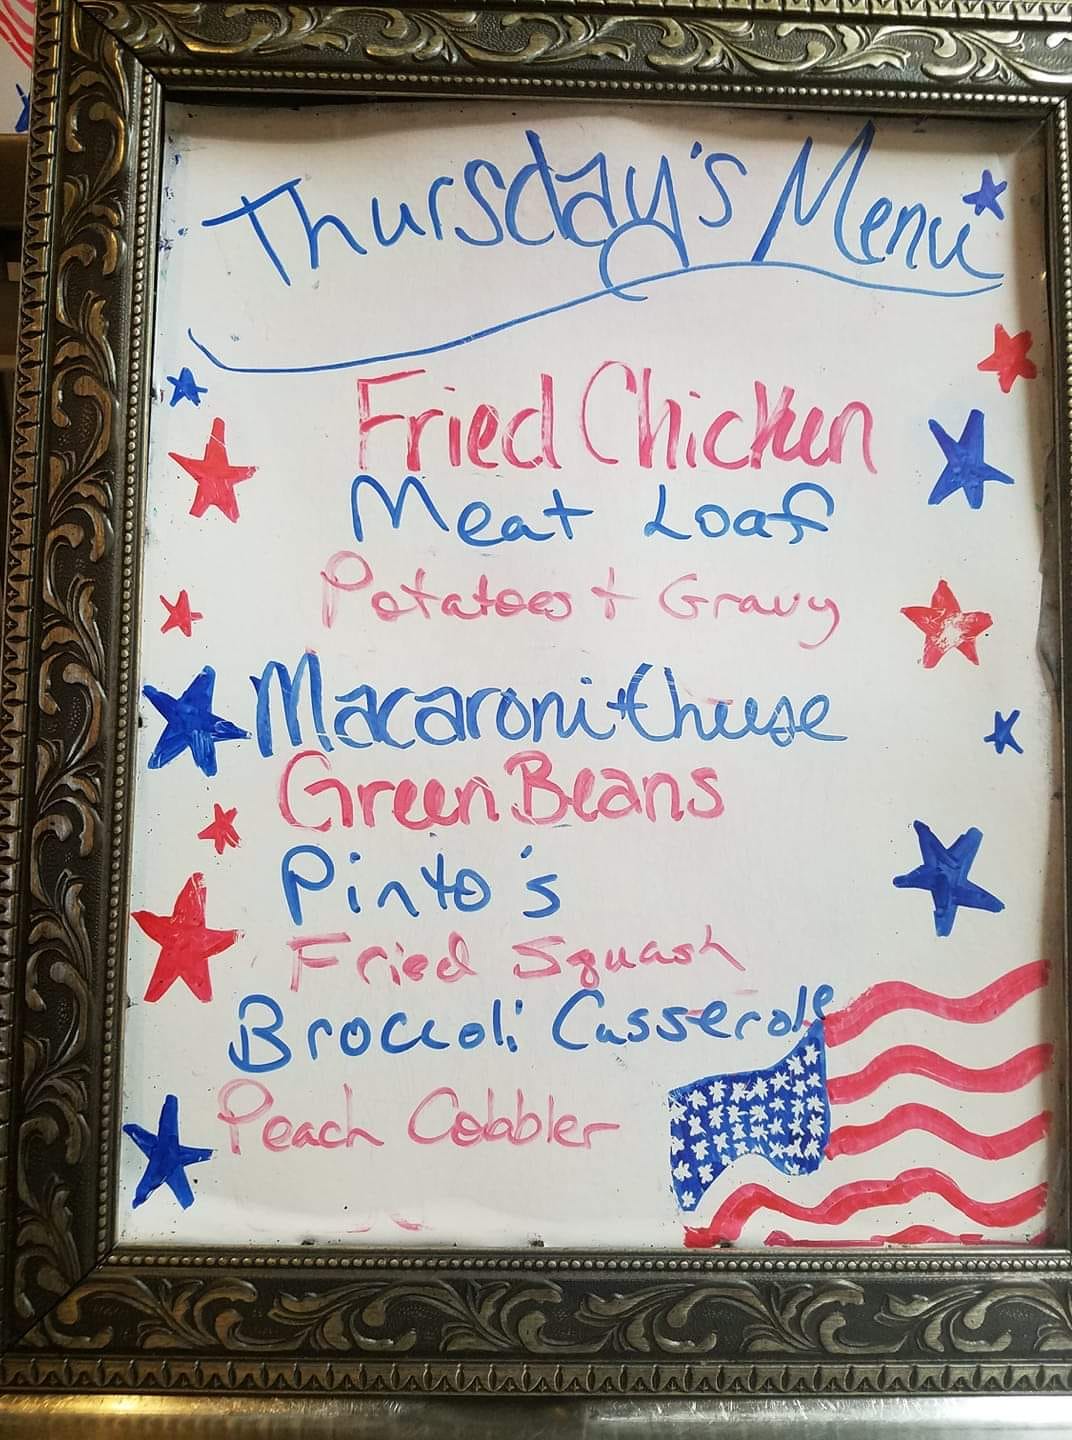 Thursday's Menu
Fried Chicken
Meat Loaf
Potatoes + Gravy
Macaroni + Cheese
Green Beans
Pinto's
Fried Squash
Broccoli Casserole
Peach Cobbler